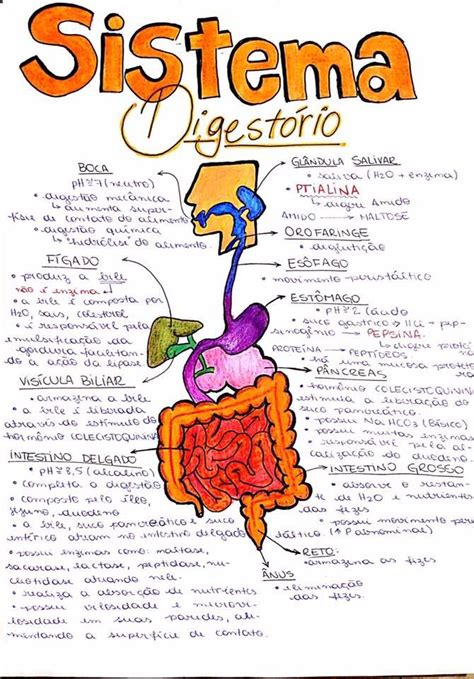 Sistema
Digestório
BOCA
pH≅7 (neutro)
• digestão mecânica
↳ aumenta super-
fície de contato do alimento
• digestão química
↳ hidrólise do alimento
FÍGADO
• produz a bile
não é enzima
• a bile é composta por
H2O, sais, colesterol
• é responsável pela
emulsificação da
gordura facilitan-
do a ação da lipase
VISÍCULA BILIAR
• armazena a bile
• a bile é liberada
através do estímulo do
hormônio COLECISTOQUININA
INTESTINO DELGADO
• pH≅8,5 (alcalino)
• completa a digestão
• composto pelo íleo,
jejuno, duodeno
• a bile, suco pancreático e suco
entérico atuam no intestino delgado
• possui enzimas como: maltase,
sacarase, lactase, peptidase, nu-
cleotidase atuando nele.
• realiza a absorção de nutrientes
• possui vilosidade e microvi-
losidade em suas paredes, au-
mentando a superfície de contato.
GLÂNDULA SALIVAR
• saliva (H2O + enzima)
• PTIALINA
↳ digere amido
AMIDO → MALTOSE
OROFARINGE
• deglutição
ESÔFAGO
• movimento peristáltico
ESTÔMAGO
• pH≅2 (ácido
• suco gástrico → HCl + pep-
sinogênio → PEPSINA
↳ digere proteí
PROTEÍNA → PEPTÍDEOS
• há uma mucosa prote
PÂNCREAS
• hormônio COLECISTOQUININ
estimula a liberação do
suco pancreático.
• possui NaHCO3 (básico)
• possui muitas enzimas
• responsável pela al-
calização do duodeno
INTESTINO GROSSO
• absorve o restan-
te de H2O e nutrientes
das fezes
• possui movimento peris
táltico (
RETO:
• armazena as fezes
ÂNUS
• eliminação
das fezes.